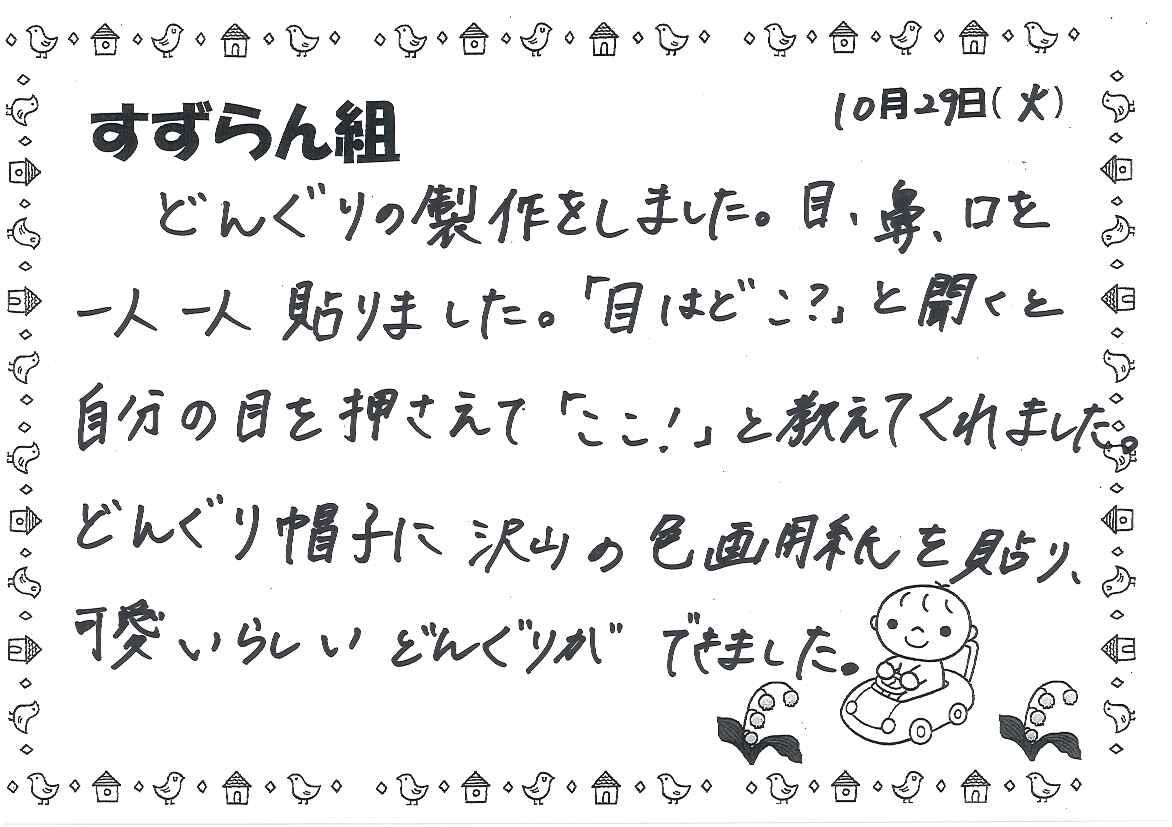 すずらん組
10月29日(火)
どんぐりの製作をしました。目、鼻、口を
一人一人貼りました。「目はどこ?」と聞くと
自分の目を押さえて「ここ!」と教えてくれました。
どんぐり帽子に沢山の色画用紙を貼り、
可愛いらしいどんぐりができました。